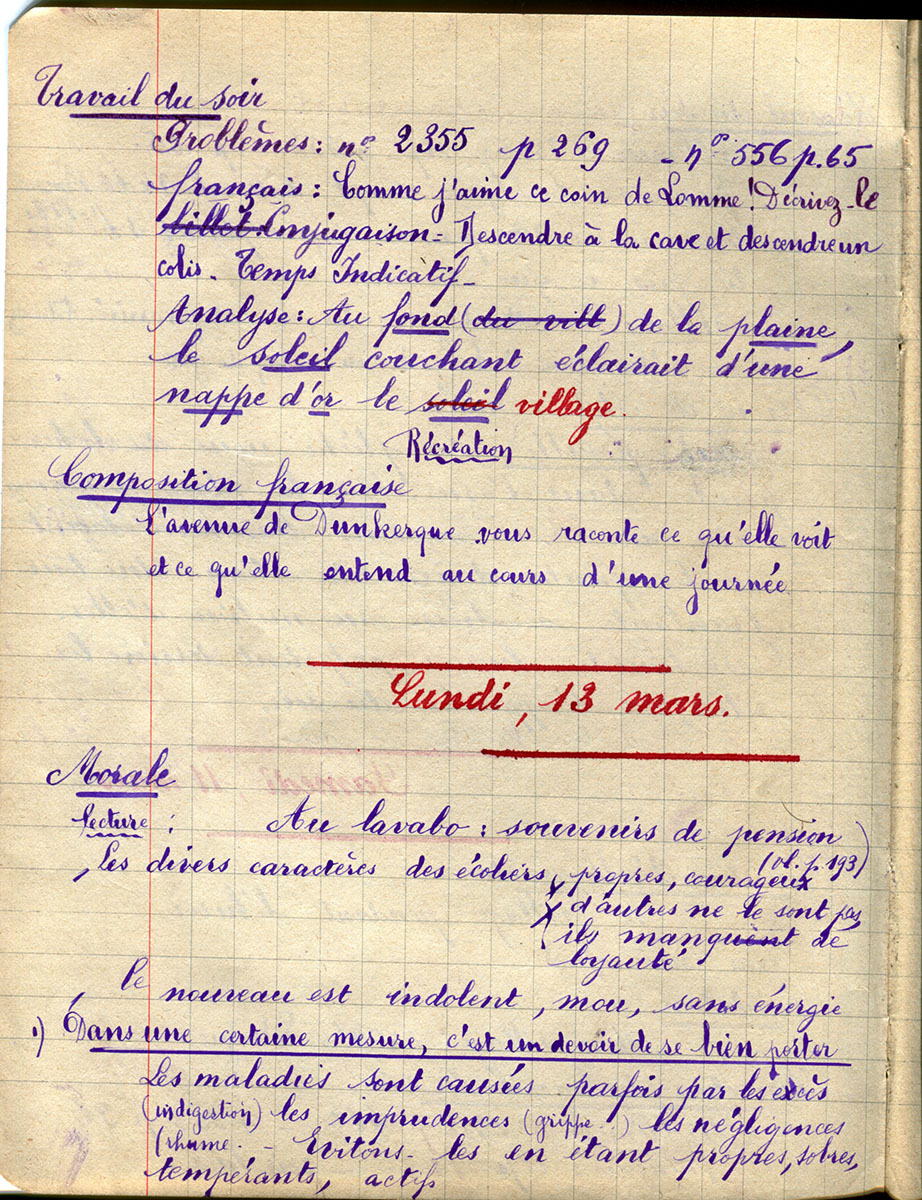 Travail du soir
Problèmes : n° 2355 p 269 - n° 556 p. 65
français : Comme j'aime ce coin de Lomme ! Décrivez-le
billet. Conjugaison = Descendre à la cave et descendre un
colis. Temps Indicatif -
Analyse : Au fond (du vill) de la plaine,
le soleil couchant éclairait d'une
nappe d'or le soleil village.
Récréation
Composition française
L'avenue de Dunkerque vous raconte ce qu'elle voit
et ce qu'elle entend au cours d'une journée
Lundi, 13 mars.
Morale
Lecture : Au lavabo : souvenirs de pension
(vl. p. 193)
Les divers caractères des écoliers, propres, courageux
d'autres ne le sont pas,
ils manquent de
loyauté
le nouveau est indolent, mou, sans énergie
1) Dans une certaine mesure, c'est un devoir de se bien porter
Les maladies sont causées parfois par les excès
(indigestion) les imprudences (grippe.) les négligences
(rhume. - Evitons-les en étant propres, sobres,
tempérants, actifs